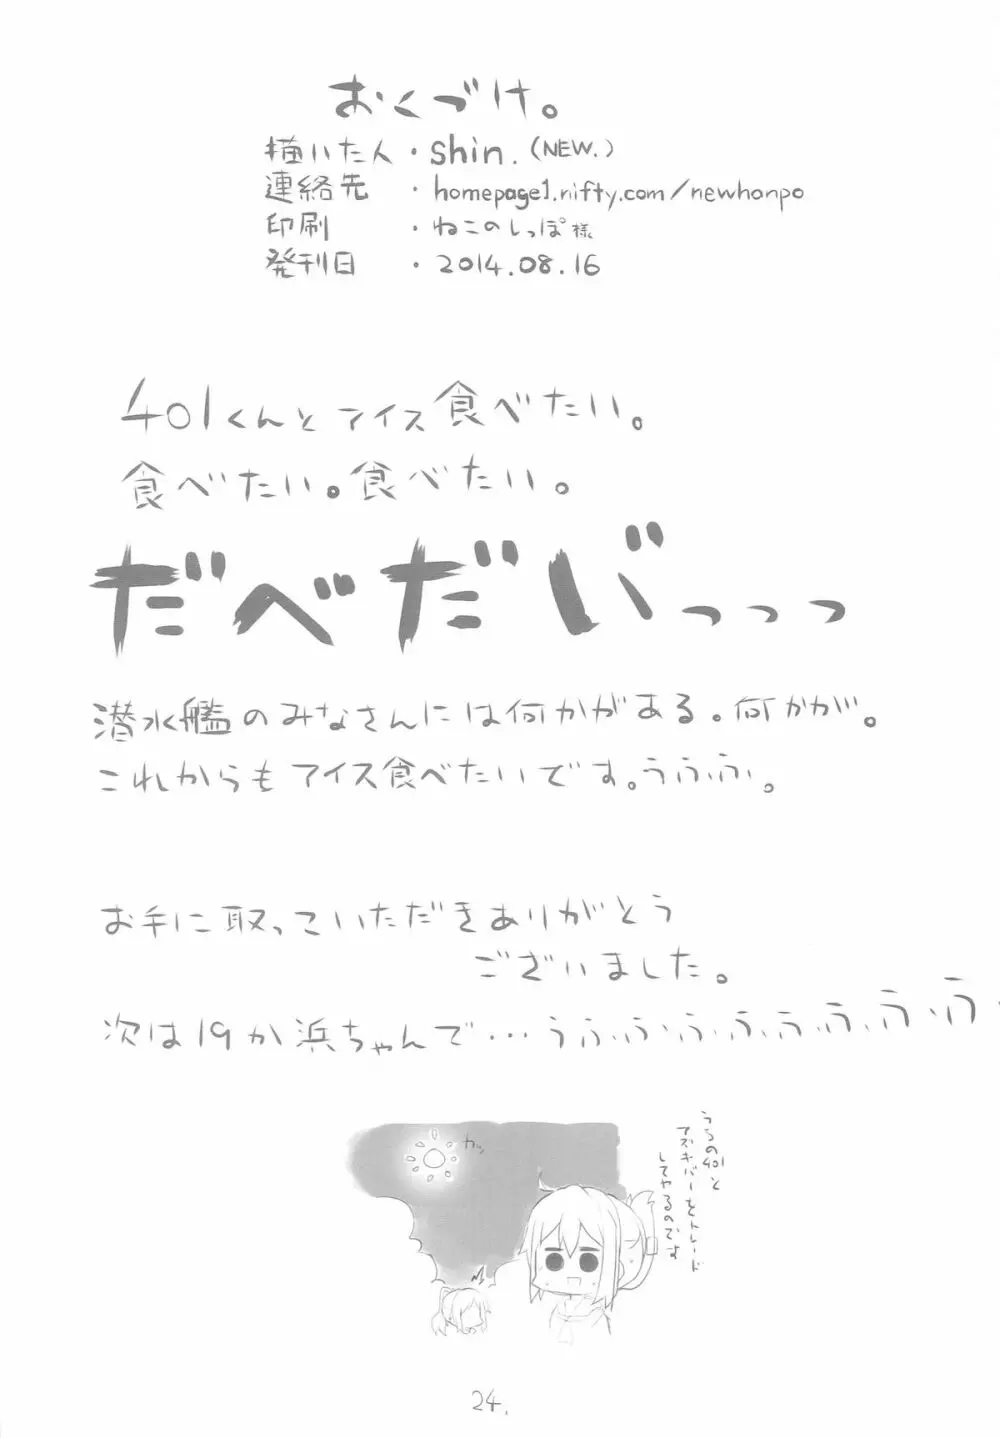 おくづけ。
描いた人・shin.(NEW.)
連絡先・homepage1.nifty.com/newhanpo
印刷・ねこのしっぽ様
発刊日・2014.08.16
401くんとアイス食べたい。
食べたい。食べたい。
だべだい゛っっっ
潜水艦のみなさんには何かがある。何かが。
これからもアイス食べたいです。うふふふ。
お手に取っていただきありがとう
ございました。
次は19か浜ちゃんで…うふふふふふふふふ
カッ
うちの401と
アズキバーをトレード
してやるのです
24.